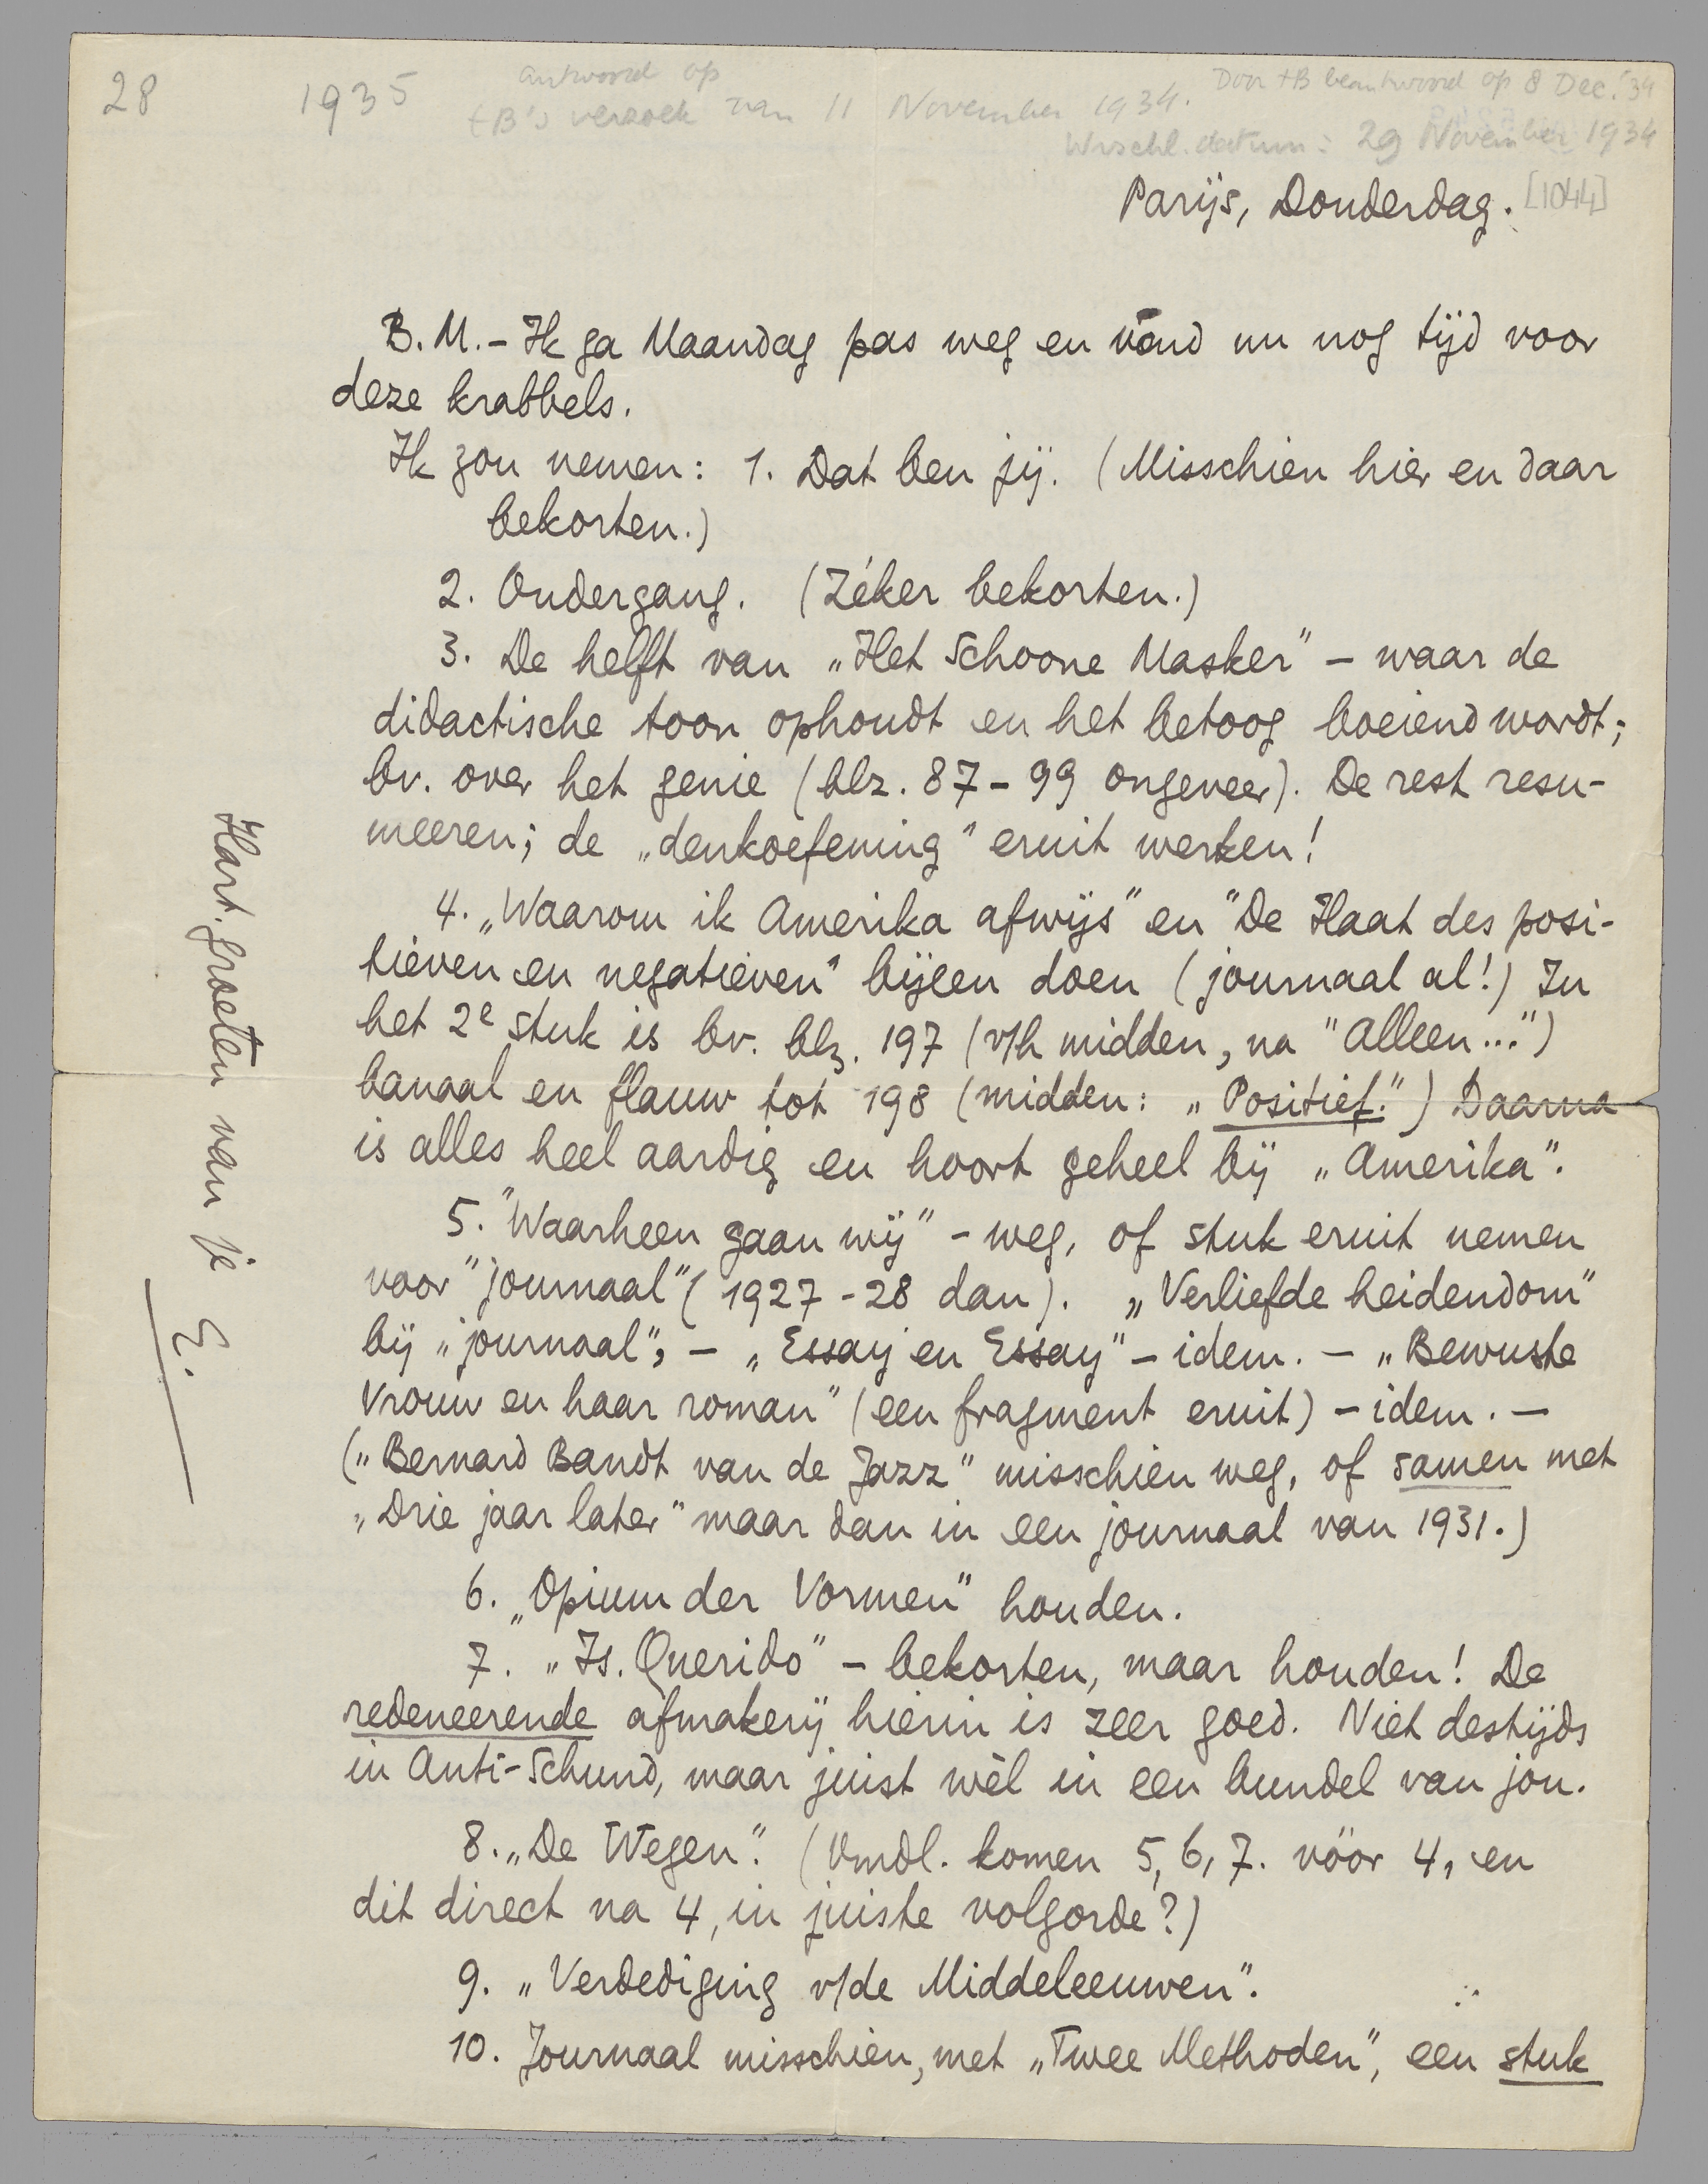 28
1935
Antwoord op
tB's verzoek van 11 November 1934.
Door tB beantwoord op 8 Dec. '34
Wrschl. datum: 29 November 1934
Parijs, Donderdag. [1044]
B.M. - Ik ga Maandag pas weg en vond nu nog tijd voor
deze krabbels.
Ik zou nemen: 1. Dat ben jij. (Misschien hier en daar
bekorten.)
2. Ondergang. (Zéker bekorten.)
3. De helft van „Het Schoone Masker" - waar de
didactische toon ophoudt en het betoog boeiend wordt;
bv. over het genie (blz. 87-99 ongeveer). De rest resu-
meeren; de „denkoefening" eruit werken!
4. „Waarom ik Amerika afwijs" en "De Haat des posi-
tieven en negatieven" bijeen doen (journaal al!) In
het 2e stuk is bv. blz. 197 (v/h midden, na "Alleen...")
banaal en flauw tot 198 (midden: „Positief.") Daarna
is alles heel aardig en hoort geheel bij „Amerika".
5. "Waarheen gaan wij" - weg, of stuk eruit nemen
voor "journaal" (1927-28 dan). „Verliefde heidendom"
bij „journaal", - „Essay en Essay" - idem. - „Bewuste
Vrouw en haar roman" (een fragment eruit) - idem. -
(„Bernard Bandt van de Jazz" misschien weg, of samen met
„Drie jaar later" maar dan in een journaal van 1931.)
6. „Opium der Vormen" houden.
7. „Is. Querido" - bekorten, maar houden! De
redeneerende afmakerij hierin is zeer goed. Niet destijds
in Anti-Schund, maar juist wèl in een bundel van jou.
8. „De Wegen". (Vmdl. komen 5, 6, 7. vóór 4, en
dit direct na 4, in juiste volgorde?)
9. „Verdediging v/de Middeleeuwen".
10. Journaal misschien, met „Twee Methoden", een stuk
Hart. groeten van je
E.